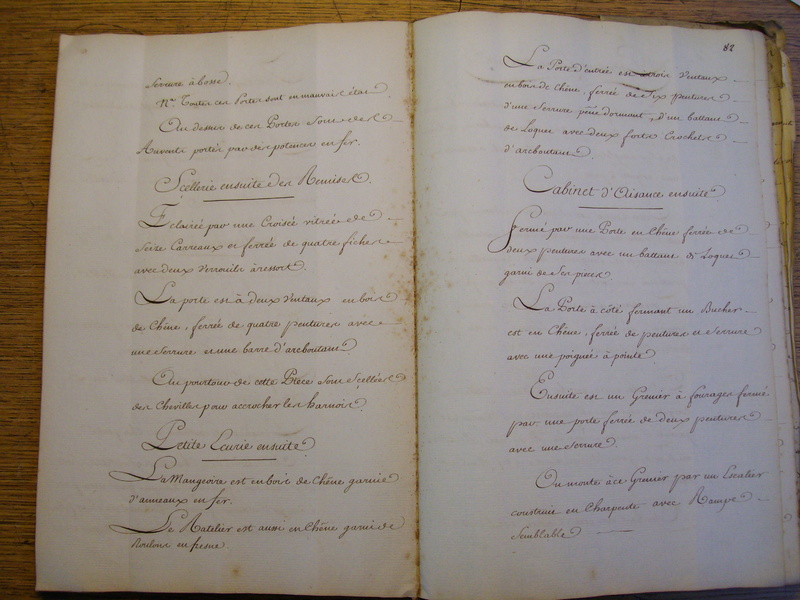 Serrure à bosse.
Na. Toutes ces Portes sont en mauvais état
Au dessus de ces Portes sont des
Auvents portés par des potences en fer.
Scellerie ensuite des Remises.
Eclairée par une Croisée vitrée de
Seize Carreaux et ferrée de quatre fiches
avec deux Verrouils à ressort.
La porte est à deux Ventaux en bois
de Chêne, ferrée de quatre pentures avec
une serrure et une barre d'arcboutant
Au pourtour de cette Pièce sont Scellées
des Chevilles pour accrocher les harnois.
Petite Ecurie ensuite
La Mangeoire est en bois de Chêne garnie
d'anneaux en fer.
Le Ratelier est aussi en Chêne garni de
Roulons en fresne.
82
La Porte d'entrée est à trois Ventaux
en bois de Chêne, ferrée de Six pentures
d'une Serrure pène dormant, d'un battant
de Loquet avec deux forts Crochets
d'arcboutant.
Cabinet d'Aisance ensuite
Fermé par une Porte en Chêne ferrée de
deux pentures avec un battant de Loquet
garni de Ses pièces.
La Porte à côté fermant un Bucher
est en Chêne, ferrée de pentures et Serrure
avec une poignée à pointe
Ensuite est un Grenier à fourages fermé
par une porte ferrée de deux pentures
avec une Serrure
On monte à ce Grenier par un Escalier
construit en Charpente avec Rampe
Semblable